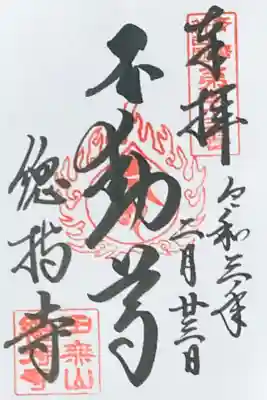 奉拝
令和三年
二月廿三日
不動尊
總持寺